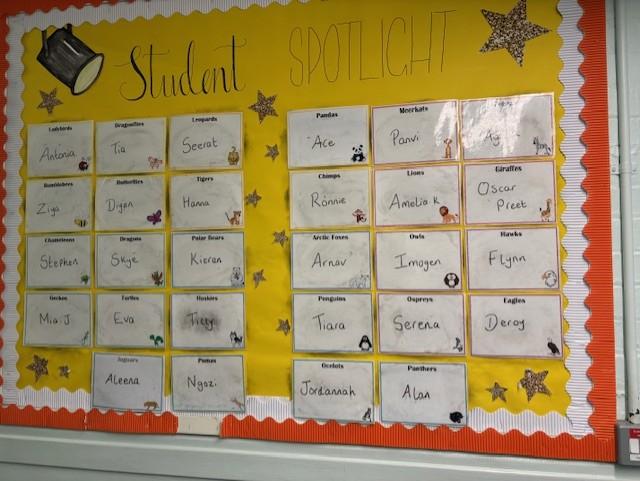 Student SPOTLIGHT
Ladybirds
Antonia
Dragonflies
Tia
Leopards
Seerat
Pandas
Ace
Meerkats
Panvi
Bumblebees
Ziya
Butterflies
Diyan
Tigers
Hanna
Chimps
Ronnie
Lions
Amelia.K
Giraffes
Oscar
Preet
Chameleons
Stephen
Dragons
Skye
Polar Bears
Kieran
Arctic Foxes
Arnav
Owls
Imogen
Hawks
Flynn
Geckos
Mia.J
Turtles
Eva
Huskies
Penguins
Tiara
Ospreys
Serena
Eagles
Deroy
Jaguars
Aleena
Pumas
Ngozi
Ocelots
Jordannah
Panthers
Alan